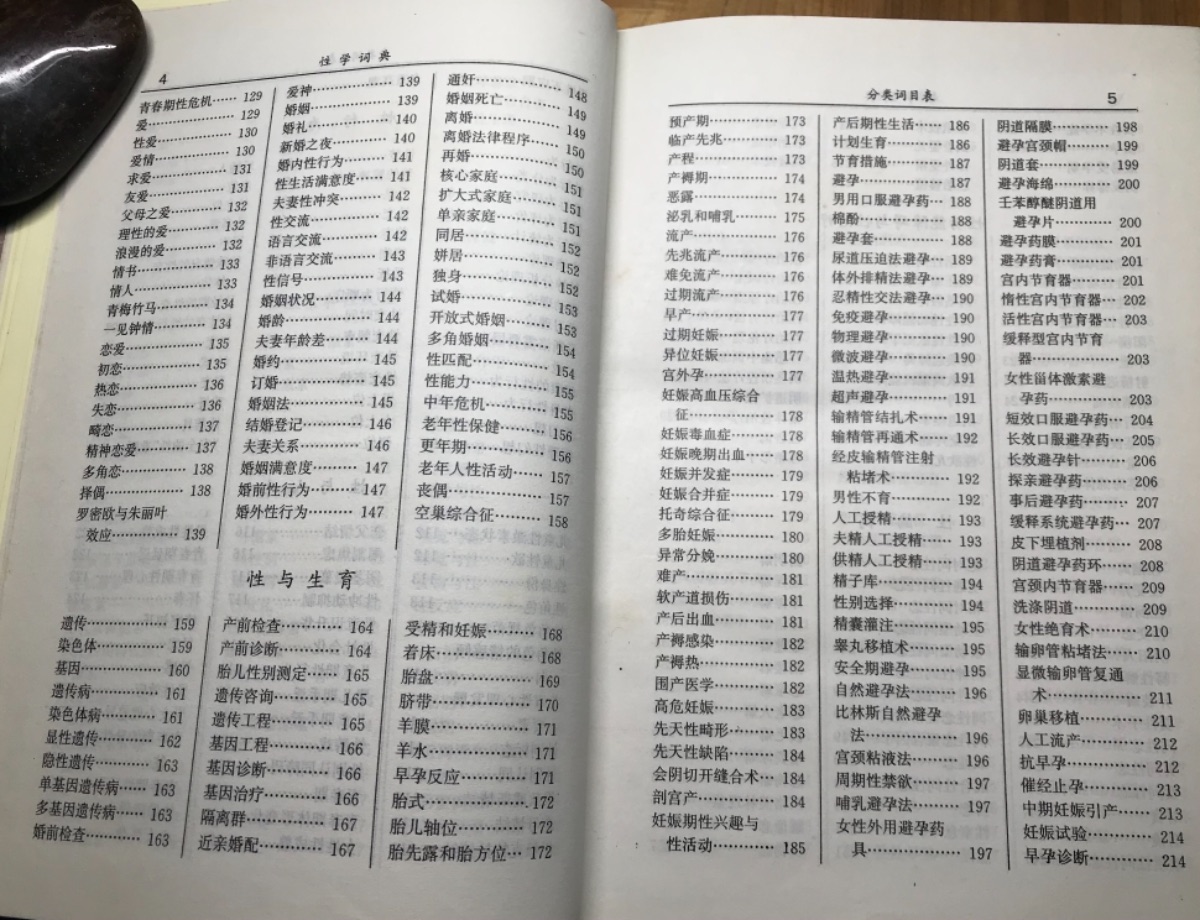 4
性学词典
青春期性危机…… 129
爱…………… 129
性爱………… 130
爱情………… 130
求爱………… 131
友爱………… 131
父母之爱…… 132
理性的爱…… 132
浪漫的爱…… 132
情书………… 133
情人………… 133
青梅竹马…… 134
一见钟情…… 134
恋爱………… 135
初恋………… 135
热恋………… 136
失恋………… 136
畸恋………… 137
精神恋爱…… 137
多角恋……… 138
择偶………… 138
罗密欧与朱丽叶
效应………… 139
爱神………… 139
婚姻………… 139
婚礼………… 140
新婚之夜…… 140
婚内性行为… 141
性生活满意度… 141
夫妻性冲突… 142
性交流……… 142
语言交流…… 142
非语言交流… 143
性信号……… 143
婚姻状况…… 144
婚龄………… 144
夫妻年龄差… 144
婚约………… 145
订婚………… 145
婚姻法……… 145
结婚登记…… 146
夫妻关系…… 146
婚姻满意度… 147
婚前性行为… 147
婚外性行为… 147
通奸………… 148
婚姻死亡…… 149
离婚………… 149
离婚法律程序… 150
再婚………… 150
核心家庭…… 151
扩大式家庭… 151
单亲家庭…… 151
同居………… 152
姘居………… 152
独身………… 152
试婚………… 153
开放式婚姻… 153
多角婚姻…… 154
性匹配……… 154
性能力……… 155
中年危机…… 155
老年性保健… 156
更年期……… 156
老年人性活动… 157
丧偶………… 157
空巢综合征… 158
性与生育
遗传………… 159
染色体……… 159
基因………… 160
遗传病……… 161
染色体病…… 161
显性遗传…… 162
隐性遗传…… 163
单基因遗传病… 163
多基因遗传病… 163
婚前检查…… 163
产前检查…… 164
产前诊断…… 164
胎儿性别测定… 165
遗传咨询…… 165
遗传工程…… 165
基因工程…… 166
基因诊断…… 166
基因治疗…… 166
隔离群……… 167
近亲婚配…… 167
受精和妊娠… 168
着床………… 168
胎盘………… 169
脐带………… 170
羊膜………… 171
羊水………… 171
早孕反应…… 171
胎式………… 172
胎儿轴位…… 172
胎先露和胎方位… 172
分类词目表
5
预产期……… 173
临产先兆…… 173
产程………… 173
产褥期……… 174
恶露………… 174
泌乳和哺乳… 175
流产………… 176
先兆流产…… 176
难免流产…… 176
过期流产…… 176
早产………… 177
过期妊娠…… 177
异位妊娠…… 177
宫外孕……… 177
妊娠高血压综合
征…………… 178
妊娠毒血症… 178
妊娠晚期出血… 178
妊娠并发症… 179
妊娠合并症… 179
托奇综合征… 179
多胎妊娠…… 180
异常分娩…… 180
难产………… 181
软产道损伤… 181
产后出血…… 181
产褥感染…… 182
产褥热……… 182
围产医学…… 182
高危妊娠…… 183
先天性畸形… 183
先天性缺陷… 184
会阴切开缝合术… 184
剖宫产……… 184
妊娠期性兴趣与
性活动……… 185
产后期性生活… 186
计划生育…… 186
节育措施…… 187
避孕………… 187
男用口服避孕药… 188
棉酚………… 188
避孕套……… 188
尿道压迫法避孕… 189
体外排精法避孕… 189
忍精性交法避孕… 190
免疫避孕…… 190
物理避孕…… 190
微波避孕…… 190
温热避孕…… 191
超声避孕…… 191
输精管结扎术… 191
输精管再通术… 192
经皮输精管注射
粘堵术……… 192
男性不育…… 192
人工授精…… 193
夫精人工授精… 193
供精人工授精… 193
精子库……… 194
性别选择…… 194
精囊灌注…… 195
睾丸移植术… 195
安全期避孕… 195
自然避孕法… 196
比林斯自然避孕
法…………… 196
宫颈粘液法… 196
周期性禁欲… 197
哺乳避孕法… 197
女性外用避孕药
具…………… 197
阴道隔膜…… 198
避孕宫颈帽… 199
阴道套……… 199
避孕海绵…… 200
壬苯醇醚阴道用
避孕片……… 200
避孕药膜…… 201
避孕药膏…… 201
宫内节育器… 201
惰性宫内节育器… 202
活性宫内节育器… 203
缓释型宫内节育
器…………… 203
女性甾体激素避
孕药………… 203
短效口服避孕药… 204
长效口服避孕药… 205
长效避孕针… 206
探亲避孕药… 206
事后避孕药… 207
缓释系统避孕药… 207
皮下埋植剂… 208
阴道避孕药环… 208
宫颈内节育器… 209
洗涤阴道…… 209
女性绝育术… 210
输卵管粘堵法… 210
显微输卵管复通
术…………… 211
卵巢移植…… 211
人工流产…… 212
抗早孕……… 212
催经止孕…… 213
中期妊娠引产… 213
妊娠试验…… 214
早孕诊断…… 214